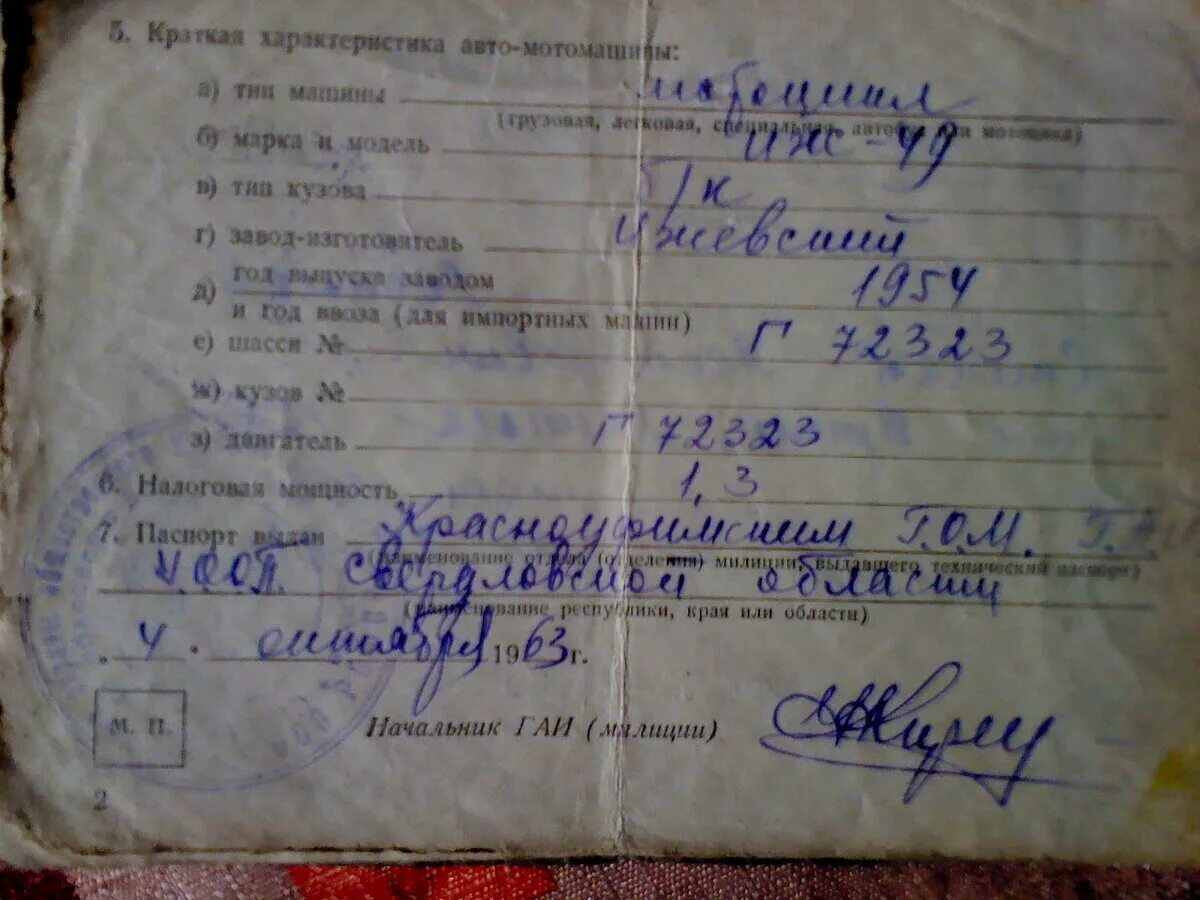 5. Краткая характеристика авто-мотомашины:
а) тип машины мотоцикл
(грузовая, легковая, специальная, или мотоцикл)
б) марка и модель ИЖ-49
в) тип кузова б/к
г) завод-изготовитель Ижевский
д) год выпуска заводом 1954
и год ввоза (для импортных машин)
е) шасси № Г 72323
ж) кузов №
з) двигатель Г 72323
6. Налоговая мощность 1,3
7. Паспорт выдан Красноуфимским Г.О.М.
(наименование отдела (отделения) милиции, выдавшего технический паспорт)
УООП Свердловской области
(наименование республики, края или области)
4 октября 1963 г.
М. П.
Начальник ГАИ (милиции)
2